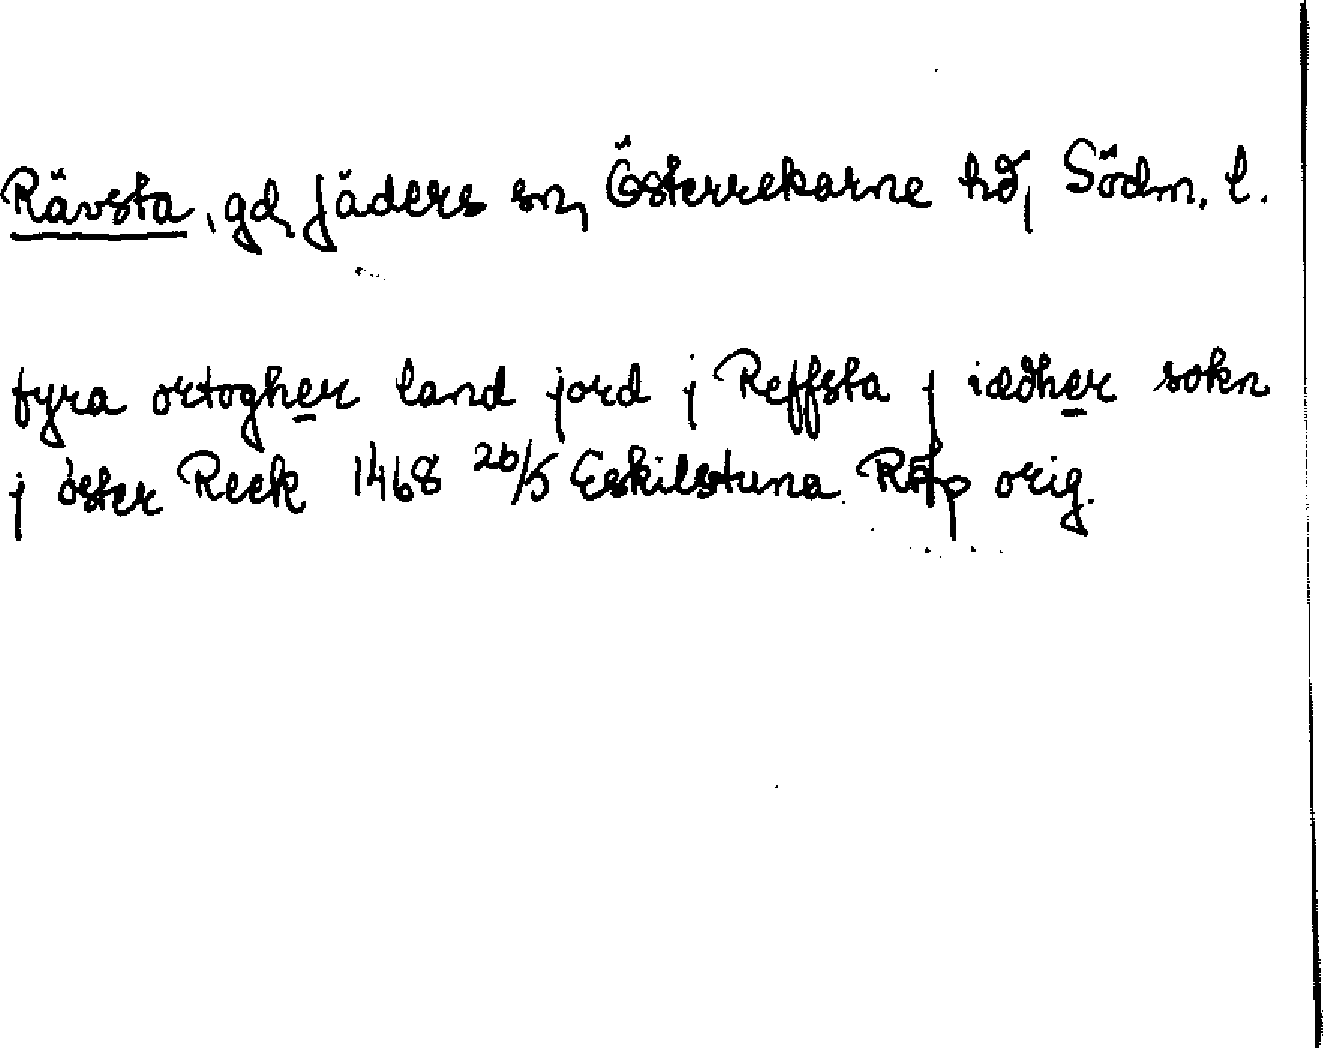 Rävsta, gd, Jäders sn, Österrekarne hd, Södm. l.
fyra ortogher land jord j Reffsta j iædher sokn
j öster Reek 1468 26/5 Eskilstuna RAp orig.